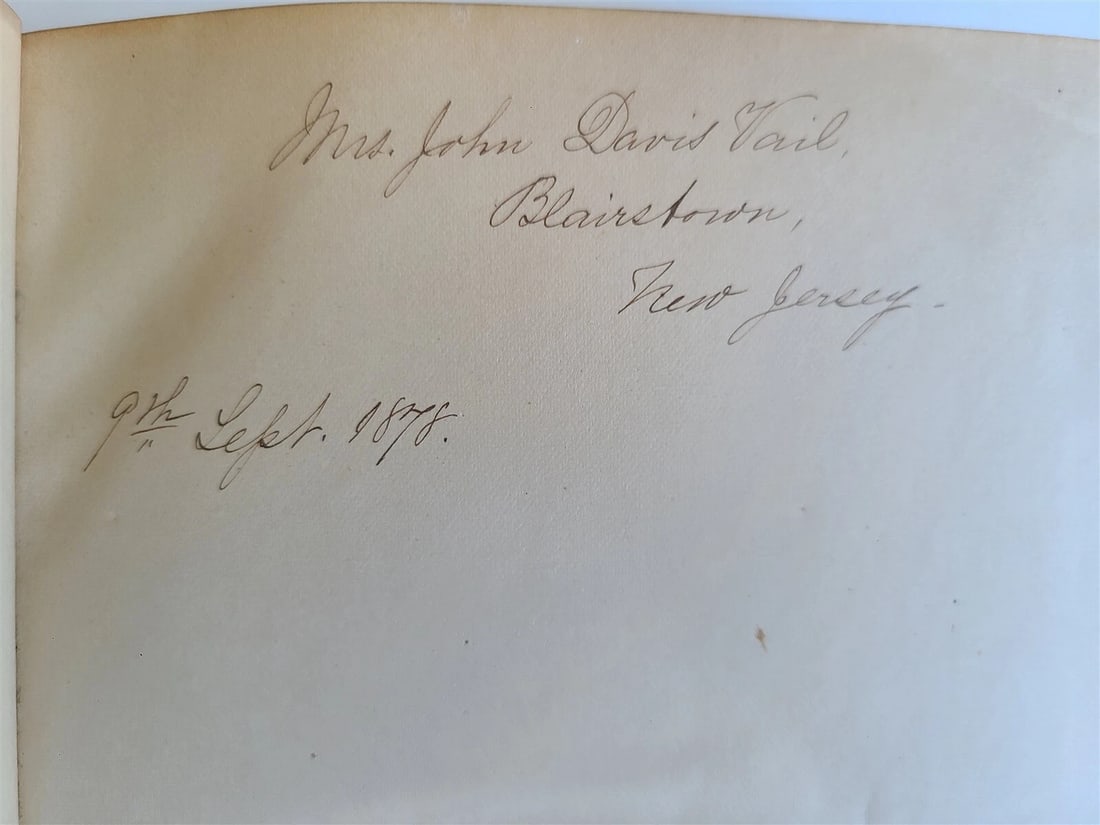 Mrs. John Davis Vail,
Blairstown,
New Jersey -
9th Sept. 1878.